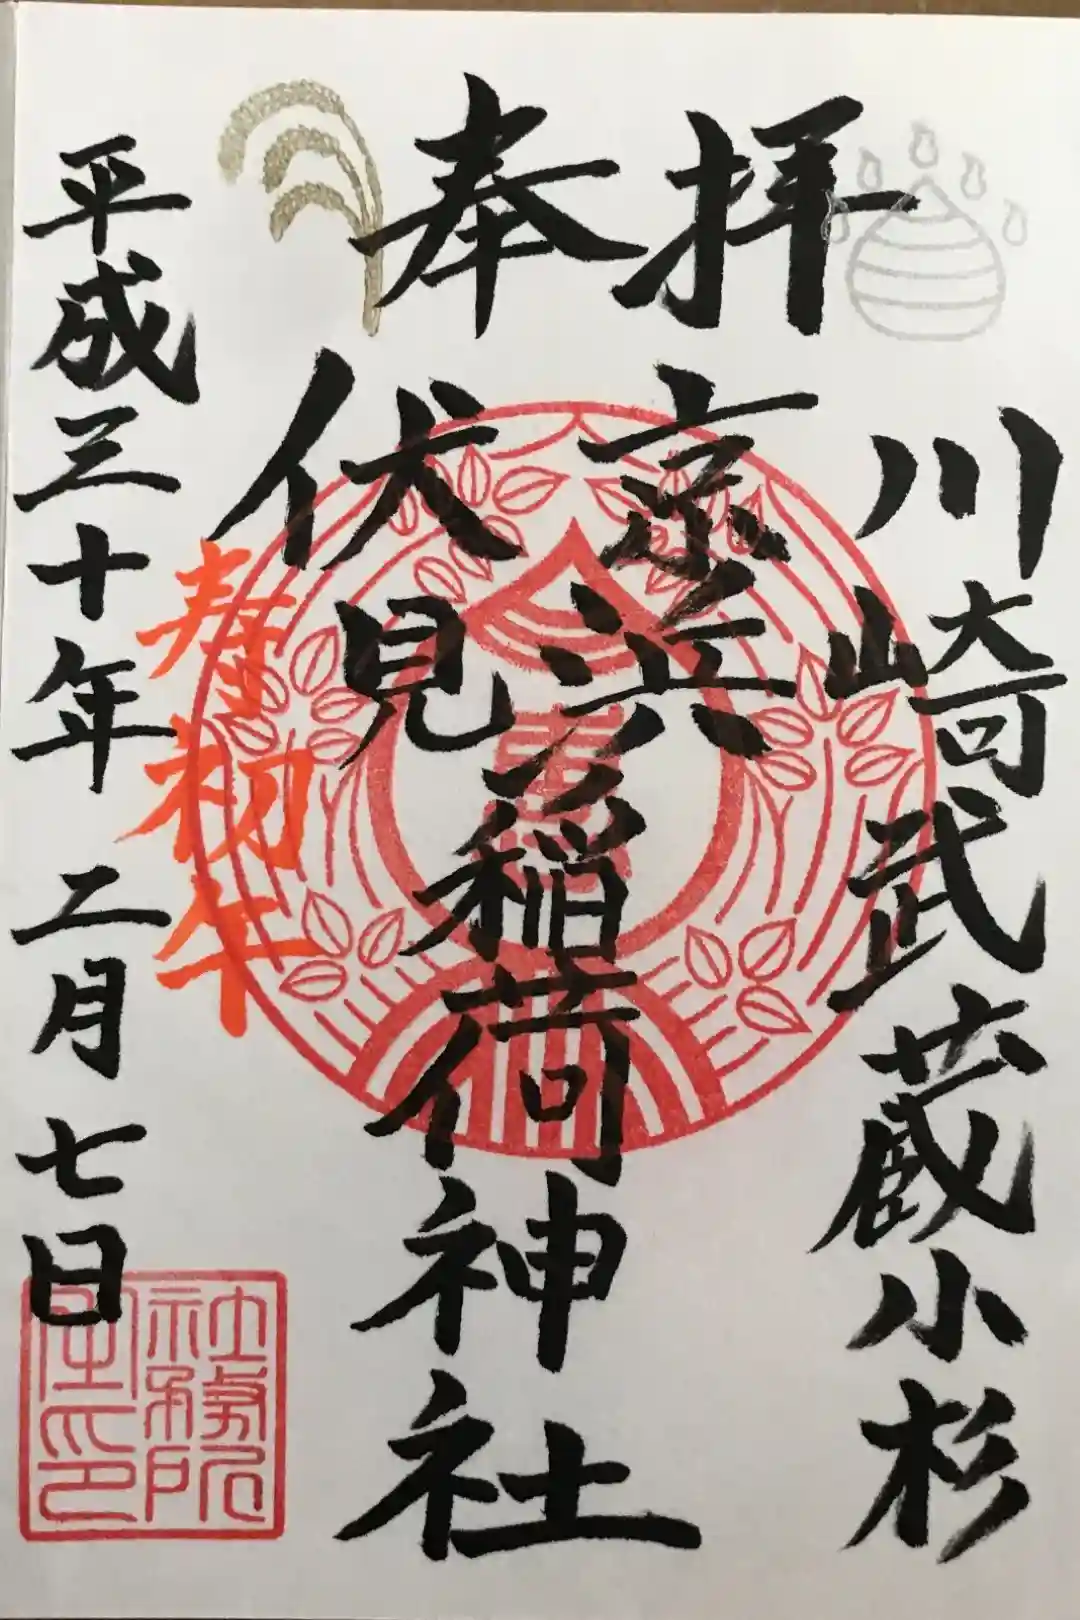 奉拝
川崎武蔵小杉
京浜
伏見稲荷神社
寿初午
平成三十年二月七日
社務所